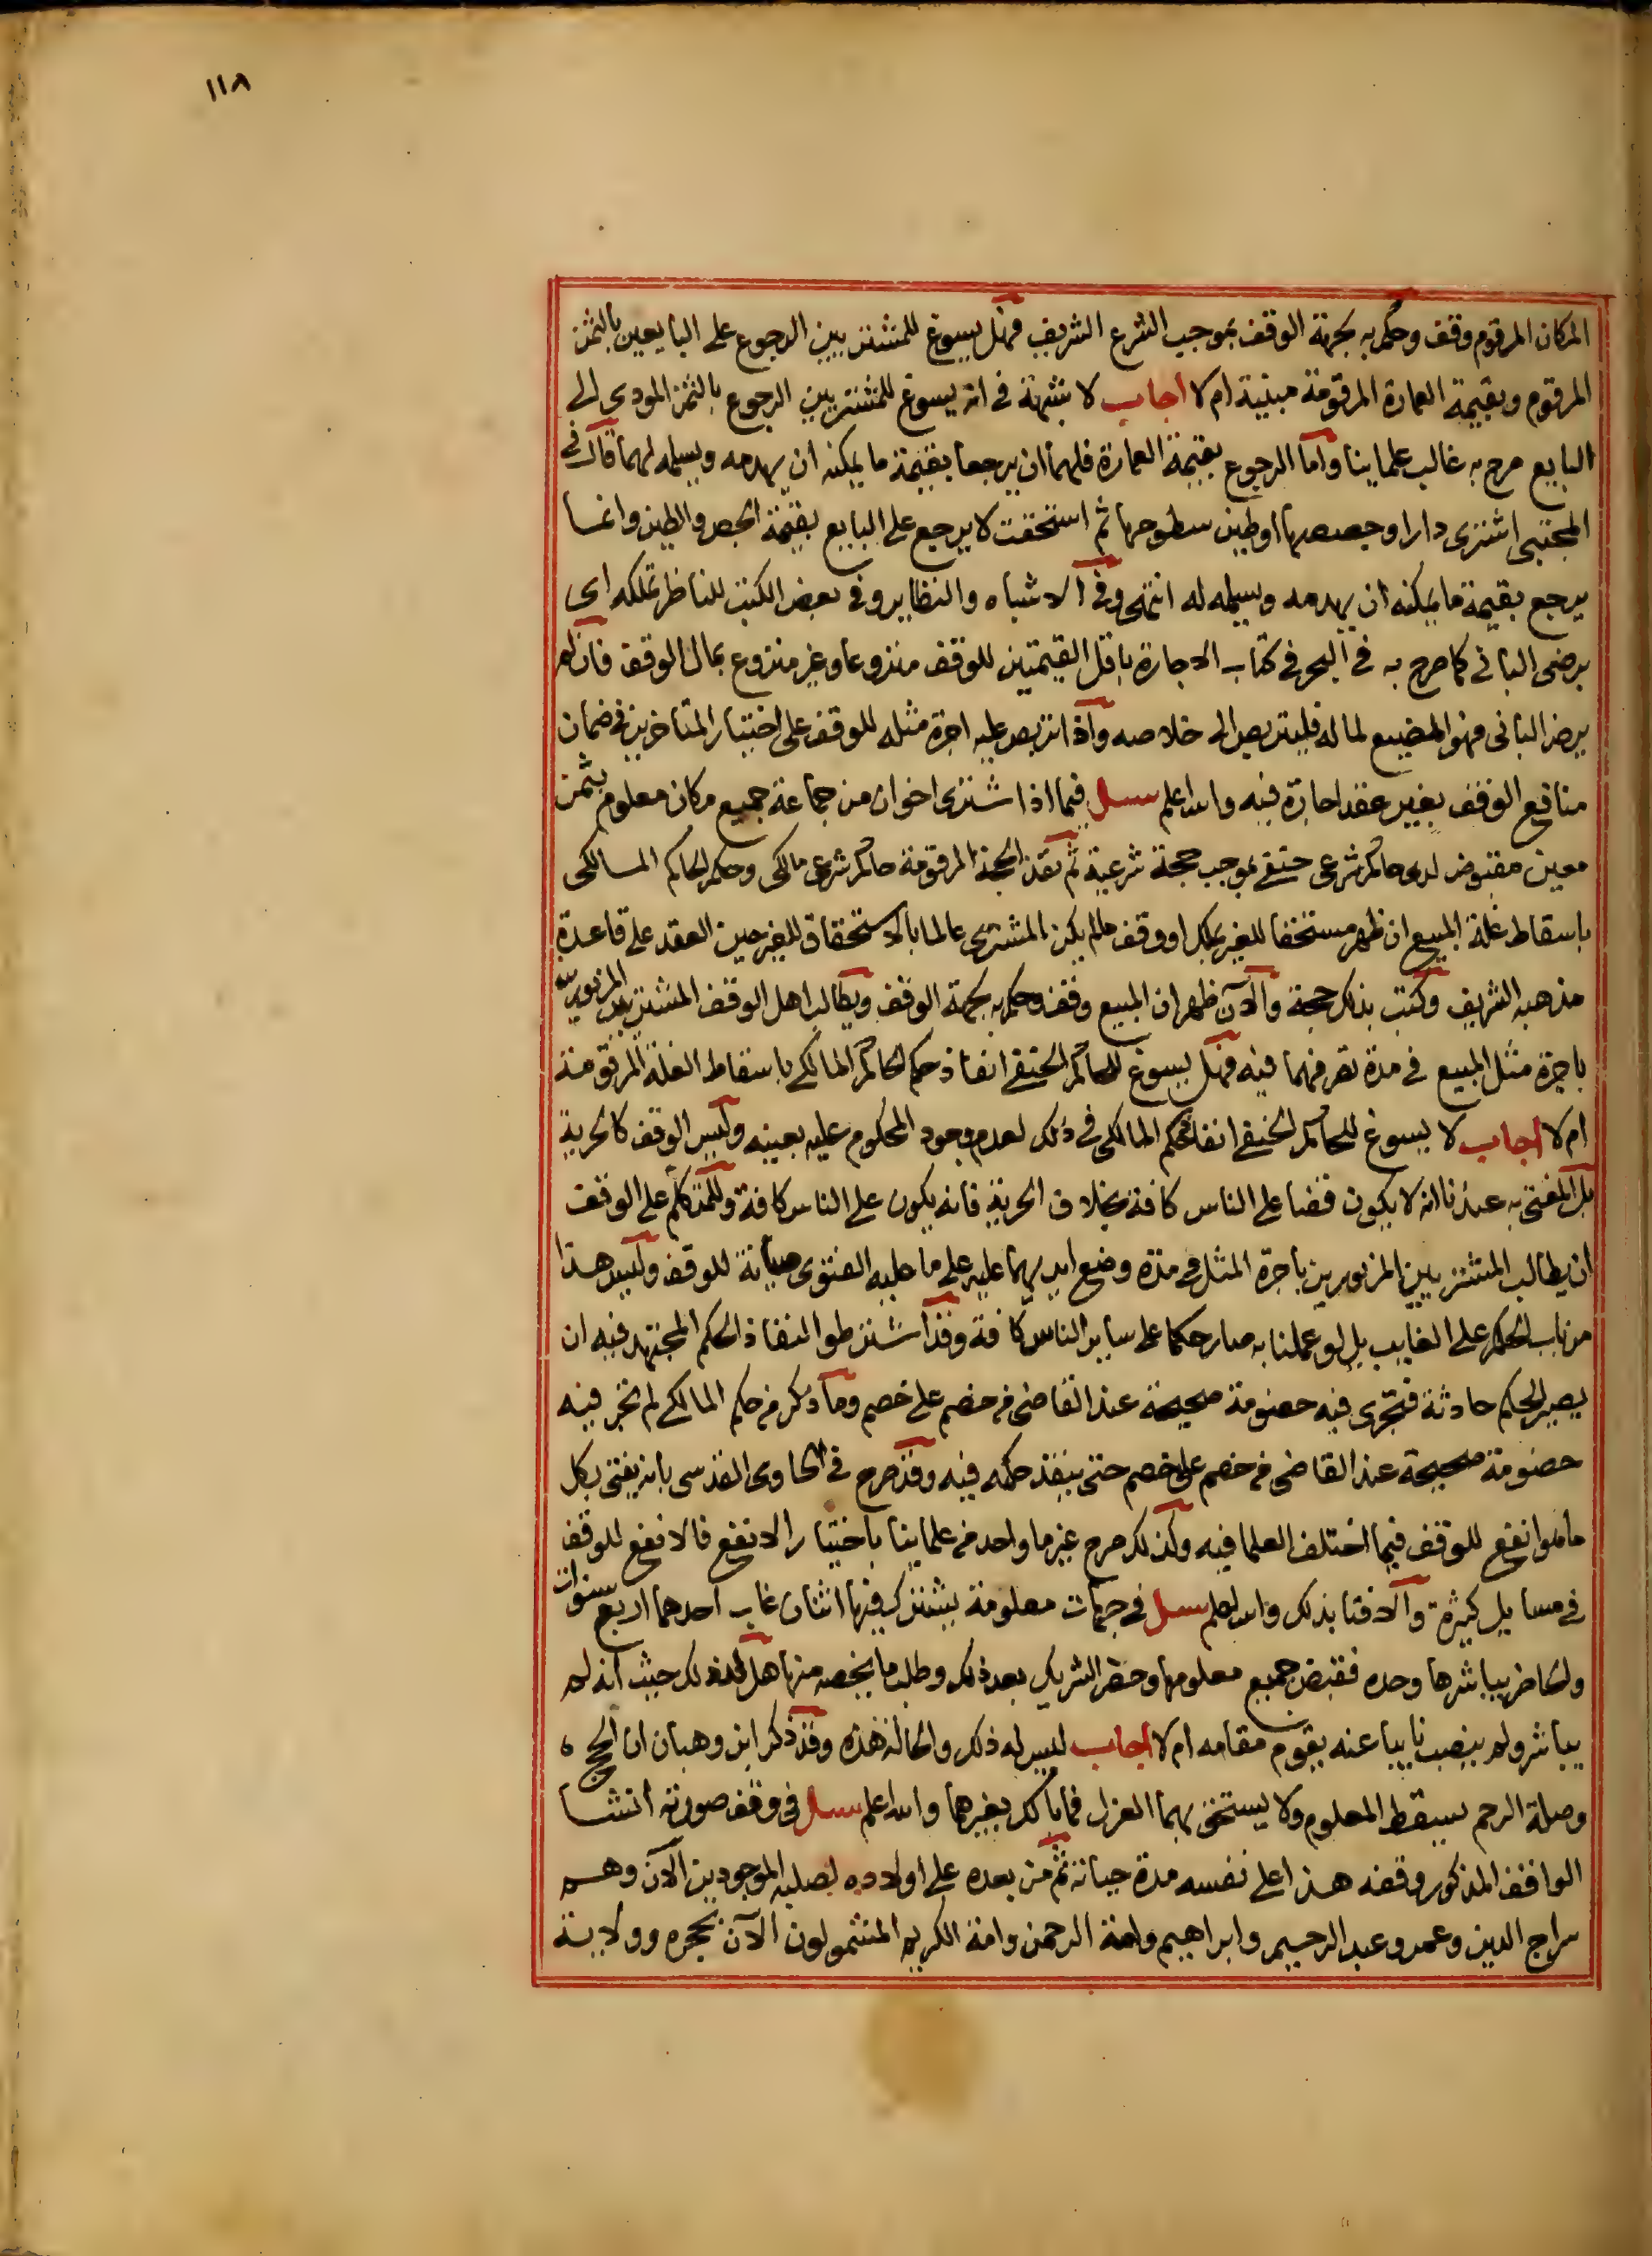 ١١٨
المكان المرقوم وقف وحكم به بجهة الوقف بموجب الشرع الشريف فهل يسوغ للمشتريين الرجوع على البايعين بالثمن
المرقوم وبقيمة العمارة المرقومة مبنية ام لا اجاب لا شبهة في انه يسوغ للمشتريين الرجوع بالثمن المودى الى
البايع صرح به غالب علماينا واما الرجوع بقيمة العمارة فلهما ان يرجعا بقيمة ما يمكنه ان يهدمه ويسلمه لهما قال في
المجتبى اشترى دارا وجصصها او طين سطوحها ثم استحقت لا يرجع على البايع بقيمة الجص والطين وانما
يرجع بقيمة ما يمكنه ان يهدمه ويسلمه له انتهى وفي الاشباه والنظاير وفي بعض الكتب للناظر تملكه اى
برضى البانى كما صرح به في البحر في كتاب الاجارة باقل القيمتين للوقف منزوعا وغير منزوع بمال الوقف فان لم
يرض البانى فهو المضيع لماله فليتربص الى خلاصه واذا تربص عليه اجرة مثله للوقف على اختيار المتاخرين في ضمان
منافع الوقف بغير عقد اجارة فيه والله اعلم سيل فيما اذا اشترى اخوان من جماعة جميع مكان معلوم بثمن
معين مقبوض لدى حاكم شرعى حنفى بموجب حجة شرعية ثم نفذ الحجة المرقومة حاكم شرعى مالكى وحكم الحاكم المالكى
باسقاط غلة المبيع ان ظهر مستحقا للغير بملك او وقف ما لم يكن المشترى عالما بالاستحقاق للغير حين العقد على قاعدة
مذهبه الشريف وكتب بذلك حجة والآن ظهر ان المبيع وقف وحكم به بجهة الوقف ويطالب اهل الوقف المشتريين المزبورين
باجرة مثل المبيع في مدة تصرفهما فيه فهل يسوغ للحاكم الحنفى انفاذ حكم الحاكم المالكى باسقاط الغلة المرقومة
ام لا اجاب لا يسوغ للحاكم الحنفى انفاذ حكم المالكى في ذلك لعدم وجود المحكوم عليه بعينه وليس الوقف كالحرية
بل المفتى به عندنا انه لا يكون قضا على الناس كافة بخلاف الحرية فانه يكون على الناس كافة وللمتكلم على الوقف
ان يطالب المشتريين المزبورين باجرة المثل في مدة وضع ايديهما عليه على ما عليه الفتوى صيانة للوقف وليس هذا
من باب الحكم على الغايب بل لو عملنا به صار حكما على ساير الناس كافة وقد اشترطوا لنفاذ الحكم المجتهد فيه ان
يصير الحكم حادثة فتجرى فيه خصومة صحيحة عند القاضى من خصم على خصم وما ذكر من حكم المالكى لم تجر فيه
خصومة صحيحة عند القاضى من خصم على خصم حتى ينفذ حكمه فيه وقد صرح في الحاوى القدسى بانه يفتى بكل
ما هو انفع للوقف فيما اختلف العلما فيه وكذلك صرح غير ما واحد من علماينا باختيار الانفع فالانفع للوقف
في مسايل كثيرة والافتا بذلك والله اعلم سيل في جهات معلومة يشترك فيها اثنان غاب احدهما اربع سنوات
والحاضر يباشرها وحده فقبض جميع معلومها وحضر الشريك بعد ذلك وطلب ما يخصه منها هل له ذلك حيث انه لم
يباشر ولم ينصب نايبا عنه يقوم مقامه ام لا اجاب ليس له ذلك والحالة هذه وقد ذكر ابن وهبان ان الحج
وصلة الرحم يسقط المعلوم ولا يستحق بهما العزل فما بالك بغيرهما والله اعلم سيل في وقف صورته انشا
الواقف المذكور وقفه هذا على نفسه مدة حياته ثم من بعده على اولاده لصلبه الموجودين الآن وهم
سراج الدين وعمر وعبد الرحيم وابراهيم وامة الرحمن وامة الكريم المشمولون الآن بحجره وولاية